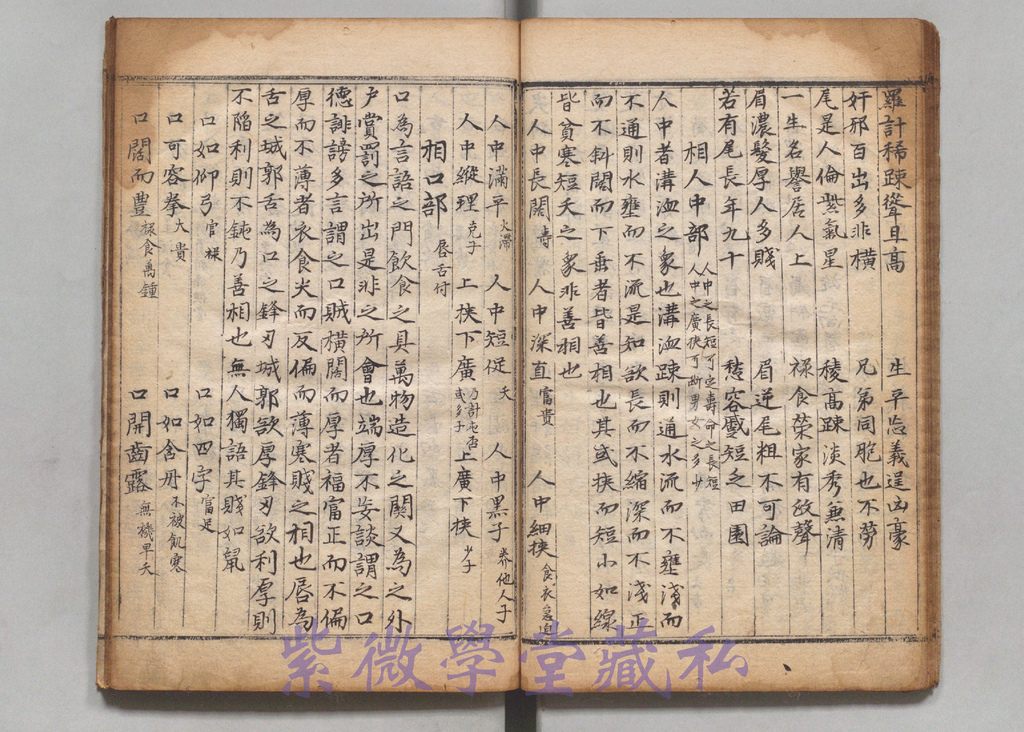 羅計稀踈聳且高 生平忘義逞凶豪
奸邪百出多非橫 兄弟同胞也不勞
尾是人倫紫氣星 稜高踈淡秀兼清
一生名譽居人上 祿食榮家有政聲
眉濃髮厚人多賤 眉逆尾粗不可論
若有尾長年九十 愁容蹙短乏田園
相人中部 人中之長短可定壽命之長短
人中之廣挾可断男女之多少
人中者溝洫之象也溝洫踈則通水流而不壅淺而
不通則水壅而不流是知欲長而不縮深而不淺正
而不斜闊而下垂者皆善相也其或挾而短小如線
皆貧寒短夭之象非善相也
人中長闊 壽 人中深直 富貴 人中細挾 食衣急迫
人中滿平 火滯 人中短促 夭 人中黑子 養他人子
人中縱理 克子 上挾下廣 或多子 上廣下挾 少子
相口部 唇舌付
口為言語之門飲食之具萬物造化之關又為之外
戶賞罰之所出是非之所會也端厚不妄談謂之口
德誹謗多言謂之口賊橫闊而厚者福富正而不偏
厚而不薄者衣食尖而反偏而薄寒賤之相也唇為
舌之城郭舌為口之鋒刃城郭欲厚鋒刃欲利厚則
不陷利則不鈍乃善相也無人獨語其賤如鼠
口如仰弓 官祿 口如四字 富足
口可容拳 大貴 口如含丹 不被飢寒
口闊而豊 祿食萬鍾 口開齒露 無機早夭
紫微學堂藏私